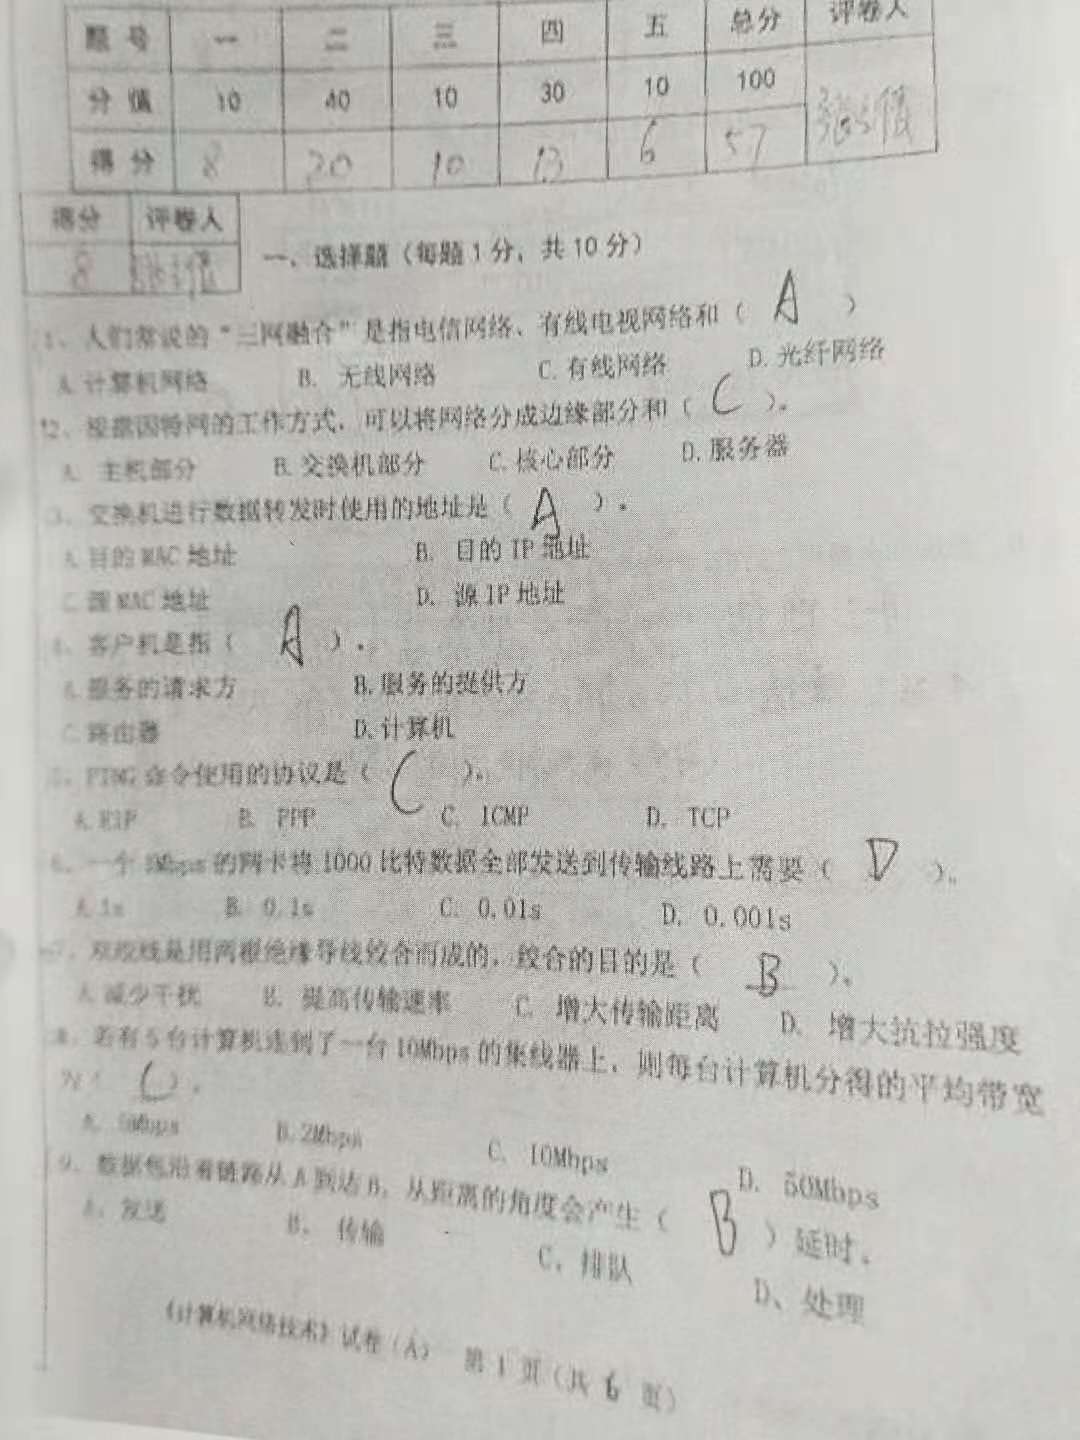 题 号 一 二 三 四 五 总分 评卷人
分 值 10 40 10 30 10 100
得 分 8 20 10 13 6 57
得分 评卷人
8
一、选择题（每题1分，共10分）
1、人们常说的“三网融合”是指电信网络、有线电视网络和（ A ）
A.计算机网络 B. 无线网络 C.有线网络 D.光纤网络
2、根据因特网的工作方式，可以将网络分成边缘部分和（ C ）。
A. 主机部分 B.交换机部分 C.核心部分 D.服务器
3、交换机进行数据转发时使用的地址是（ A ）。
A.目的MAC地址 B. 目的IP地址
C.源MAC地址 D. 源IP地址
4、客户机是指（ A ）。
A.服务的请求方 B.服务的提供方
C.路由器 D.计算机
5、PING命令使用的协议是（ C ）。
A.RIP B. PPP C. ICMP D. TCP
6、一个1Mbps的网卡将1000比特数据全部发送到传输线路上需要（ D ）。
A.1s B. 0.1s C. 0.01s D. 0.001s
7、双绞线是用两根绝缘导线绞合而成的，绞合的目的是（ B ）。
A.减少干扰 B. 提高传输速率 C. 增大传输距离 D. 增大抗拉强度
8、若有5台计算机连到了一台10Mbps的集线器上，则每台计算机分得的平均带宽
为（ C ）。
A. Mbps B.2Mbps C. 10Mbps D. 50Mbps
9、数据包沿着链路从A到达B，从距离的角度会产生（ B ）延时。
A、发送 B、传输 C、排队 D、处理
《计算机网络技术》试卷（A） 第 1 页（共 6 页）